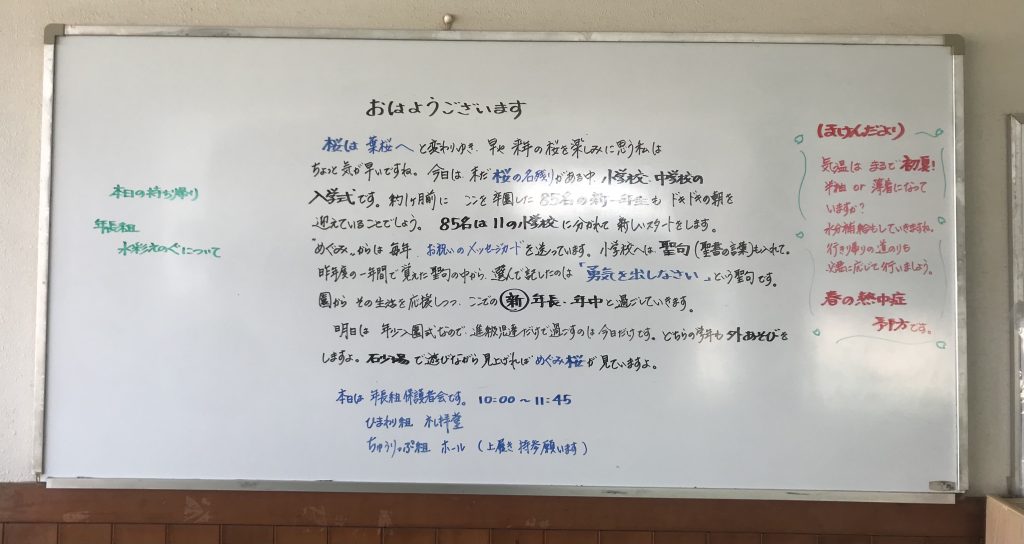 おはようございます
桜は 葉桜へ と変わりゆき、早や 来年の桜を楽しみに思う私は
ちょっと気が早いですね。今日は、まだ 桜の名残りがある中、小学校、中学校の
入学式です。約1ヶ月前に ここを卒園した 85名の新一年生も ドキドキの朝を
迎えていることでしょう。85名は 11の小学校に分かれて 新しいスタートをします。
"めぐみ"からは毎年 お祝いのメッセージカードを送っています。小学校へは 聖句(聖書の言葉)も入れて。
昨年度の一年間で覚えた聖句の中から、選んで記したのは「勇気を出しなさい」という聖句です。
園から その生活を応援しつつ、ここでの 新 年長・年中と過ごしていきます。
明日は 年少入園式なので、進級児達だけで過ごすのは今日だけです。どちらの学年も 外あそびを
しますよ。石少場で遊びながら見上げれば めぐみ桜が見ていますよ。
本日は 年長組保護者会です。10:00〜11:45
ひまわり組 礼拝堂
ちゅうりっぷ組 ホール (上履き持参願います)
本日の持ち帰り
年長組
水彩えのぐについて
(ほけんだより)
気温は まるで 初夏!
半袖 or 薄着になって
いますか?
水分補給もしていきますね。
行き帰りの道のりも
必要に応じて行いましょう。
春の熱中症
予防です。